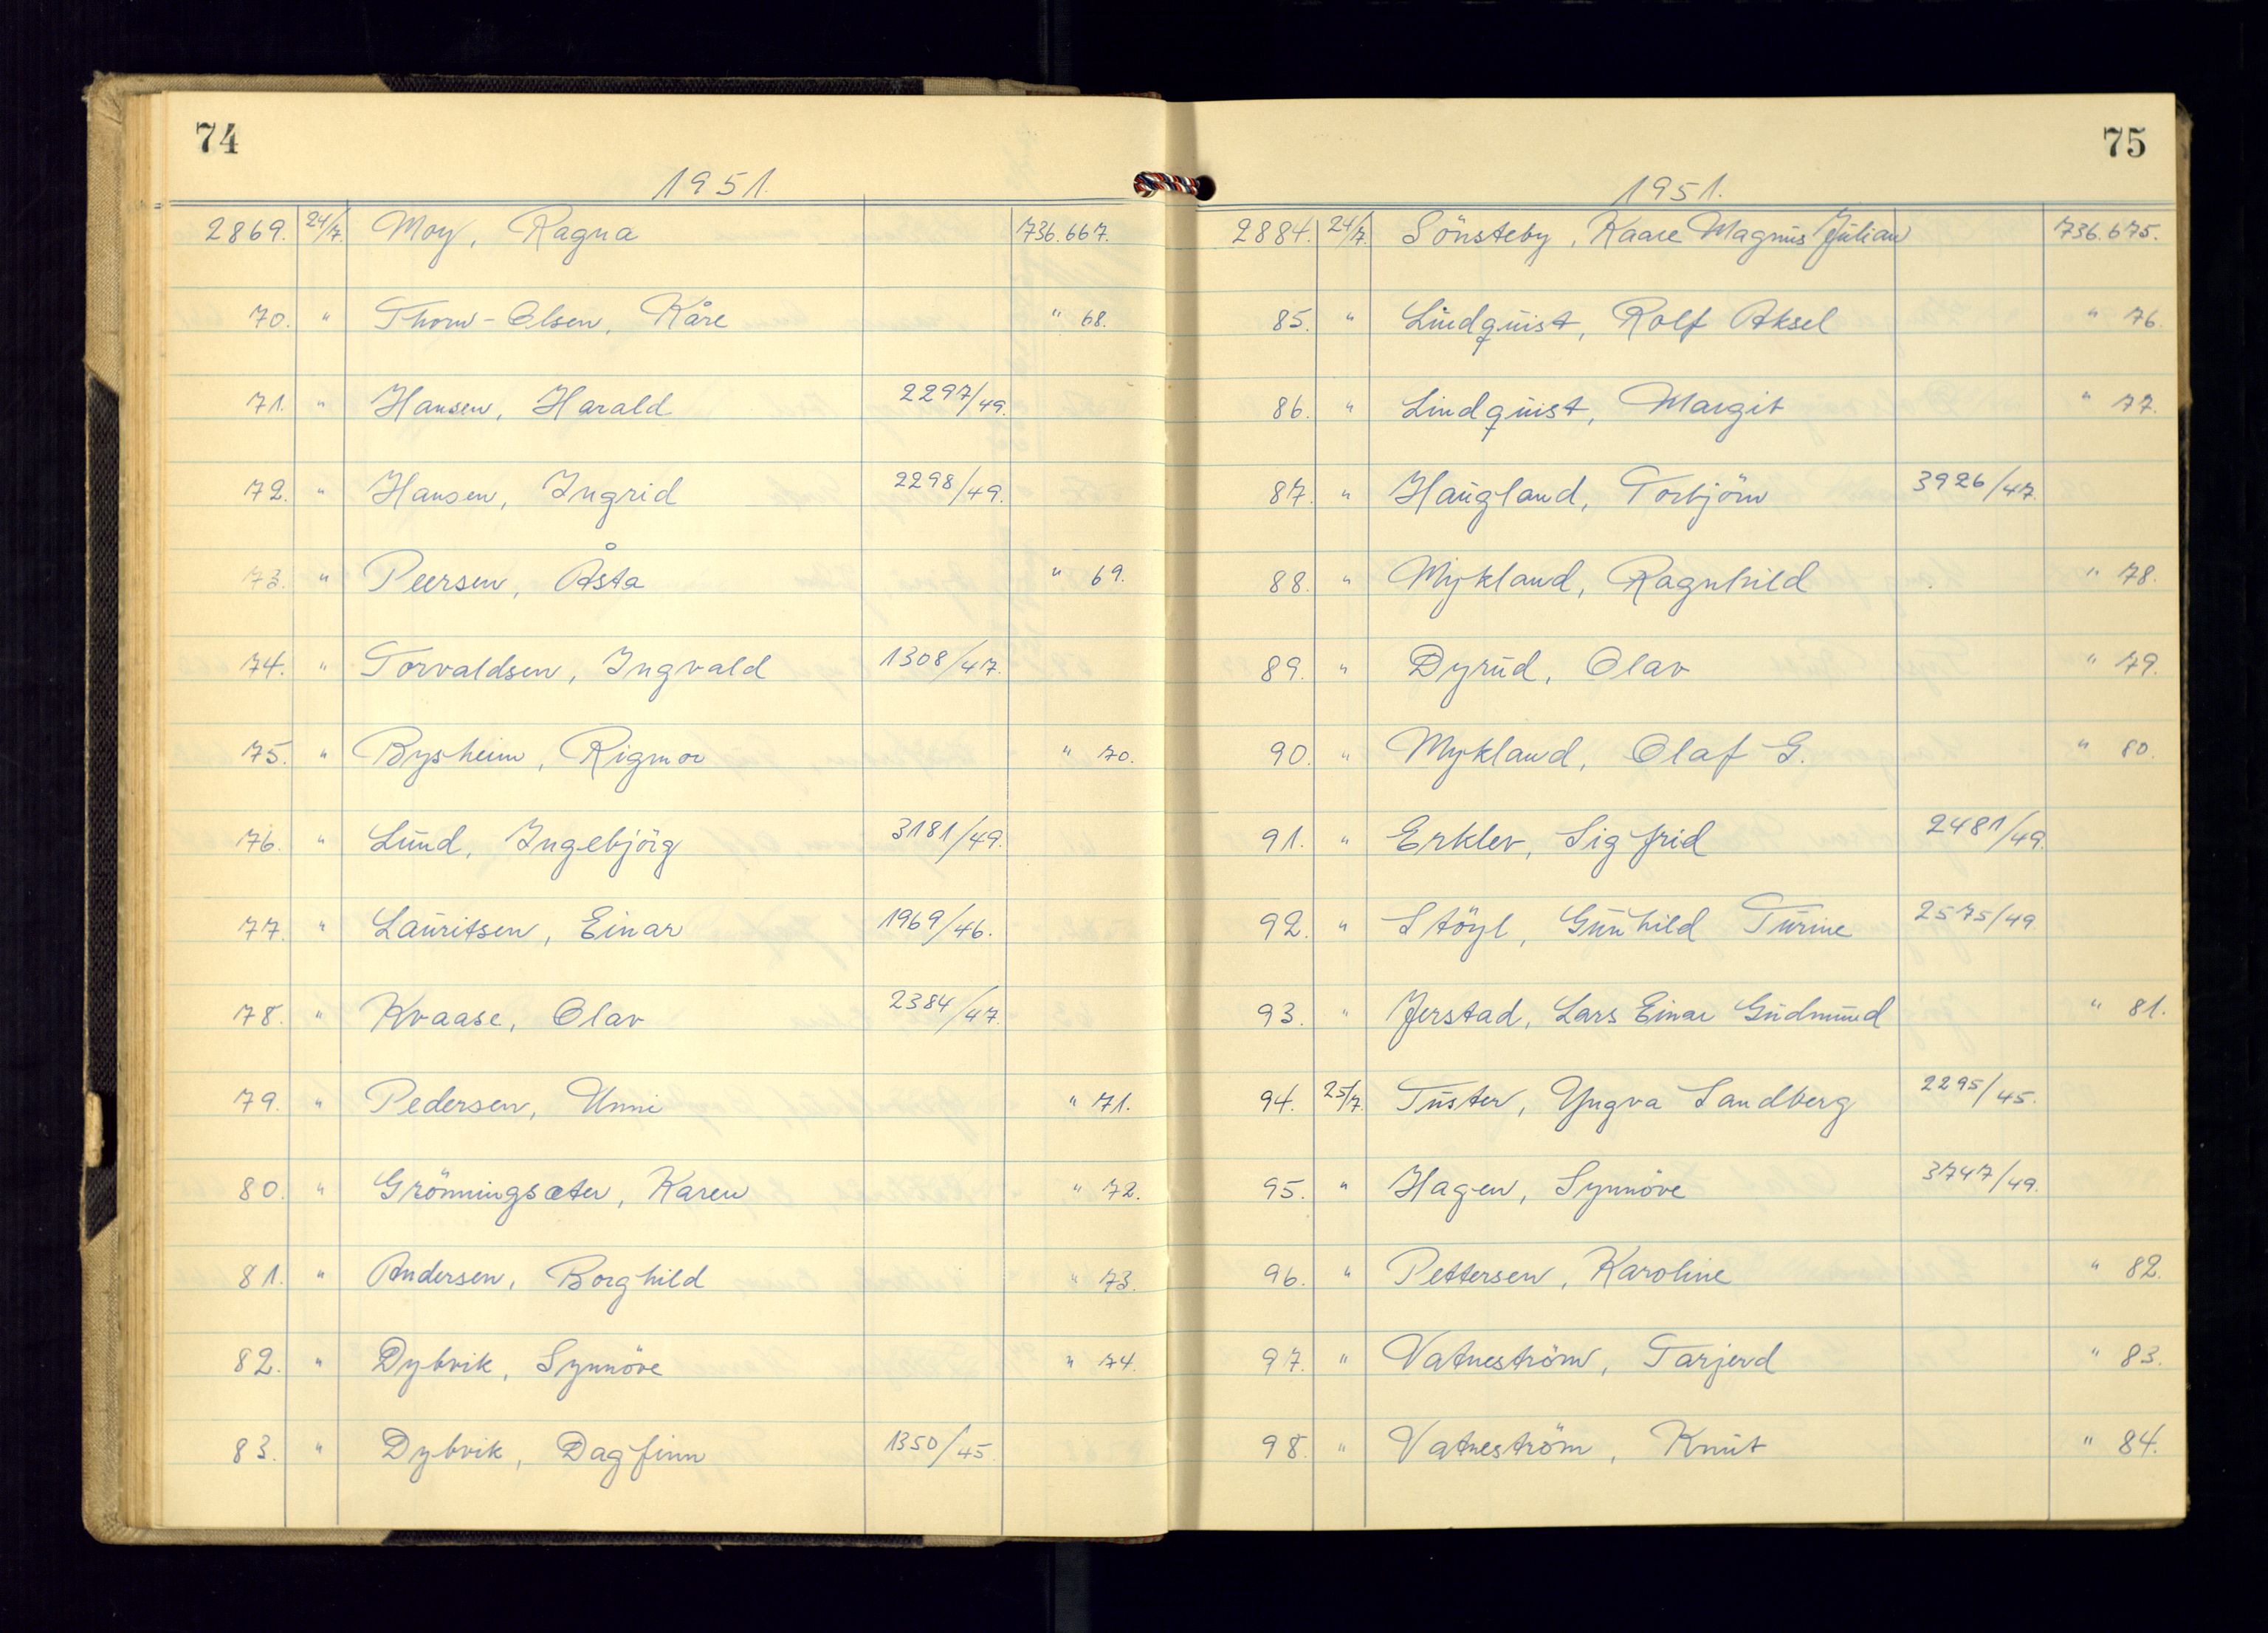 74
1951.
2869. 24/7. Moy, Ragna 736.667.
70. " Thorn-Olsen, Kåre " 68.
71. " Hansen, Harald 2297/49.
72. " Hansen, Ingrid 2298/49.
73. " Peersen, Åsta " 69.
74. " Torvaldsen, Ingvald 1308/47.
75. " Bysheim, Rigmor " 70.
76. " Lund, Ingebjörg 3181/49.
77. " Lauritsen, Einar 1969/46.
78. " Kvaase, Olav 2384/47.
79. " Pedersen, Unni " 71.
80. " Grönningsæter, Karen " 72.
81. " Andersen, Borghild " 73.
82. " Dybvik, Synnöve " 74.
83. " Dybvik, Dagfinn 1350/45.
75
1951.
2884. 24/7. Sönsteby, Kaare Magnus Julian 736.675.
85. " Lindquist, Rolf Aksel " 76.
86. " Lindquist, Margit " 77.
87. " Haugland, Torbjörn 3926/47.
88. " Mykland, Ragnhild " 78.
89. " Dyrud, Olav " 79.
90. " Mykland, Olaf G. " 80.
91. " Erklev, Sigfrid 2481/49.
92. " Stöyl, Gunhild Turine 2575/49
93. " Jerstad, Lars Einar Gudmund " 81.
94. 25/7. Tuster, Yngva Sandberg 2295/45.
95. " Hagen, Synnöve 3747/49.
96. " Pettersen, Karoline " 82.
97. " Vatneström, Tarjerd " 83.
98. " Vatneström, Knut " 84.